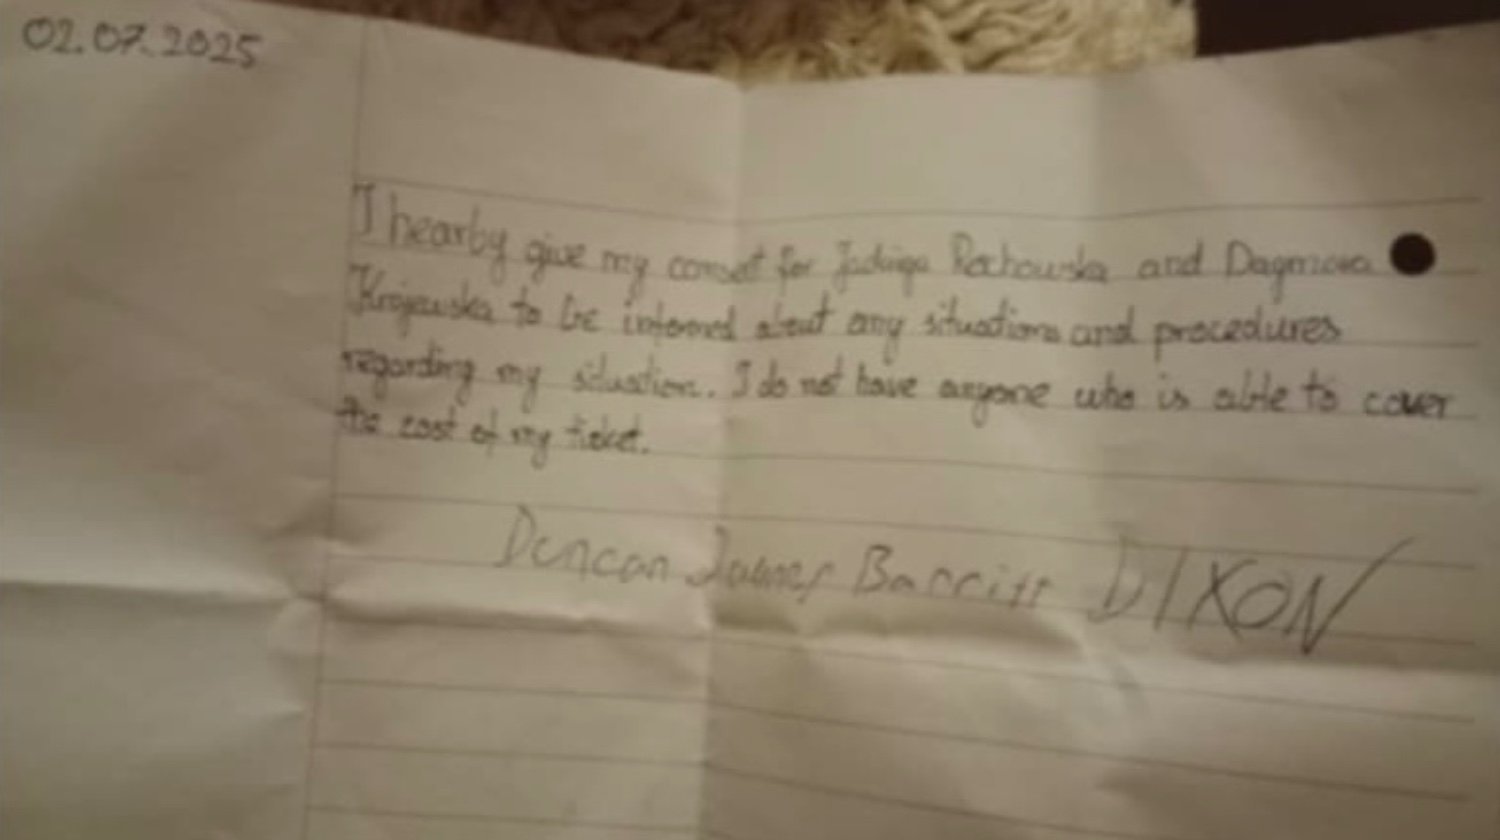 02.07.2025
I hearby give my consent for Jadwiga Rochowska and Dagmara
Krajewska to be informed about any situations and procedures
regarding my situation. I do not have anyone who is able to cover
the cost of my ticket.
Duncan James Barritt DIXON